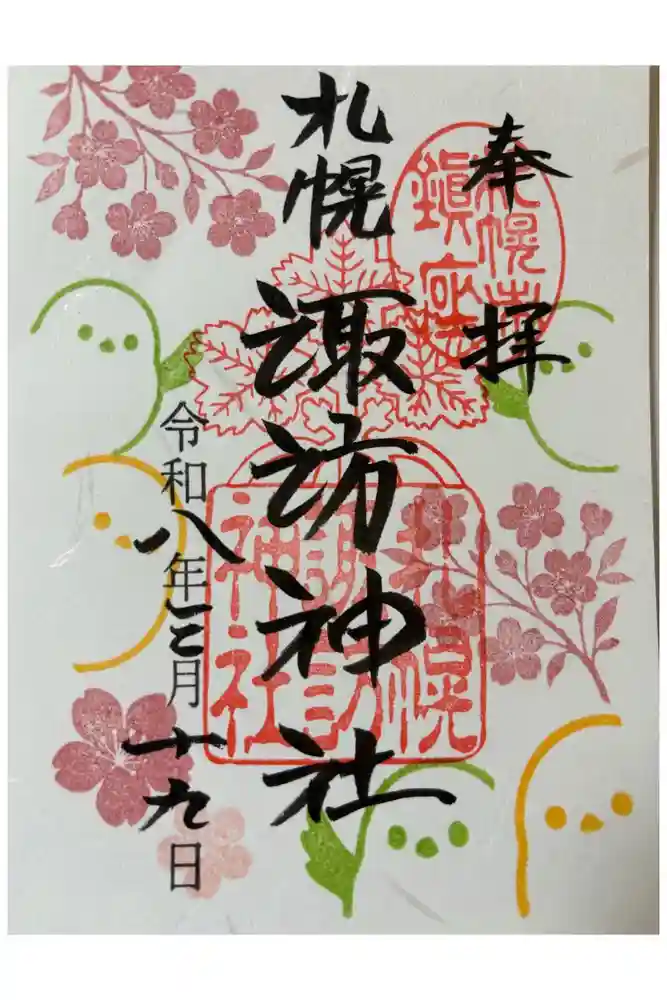 奉拝
札幌諏訪神社
令和八年三月十九日
札幌諏訪神社